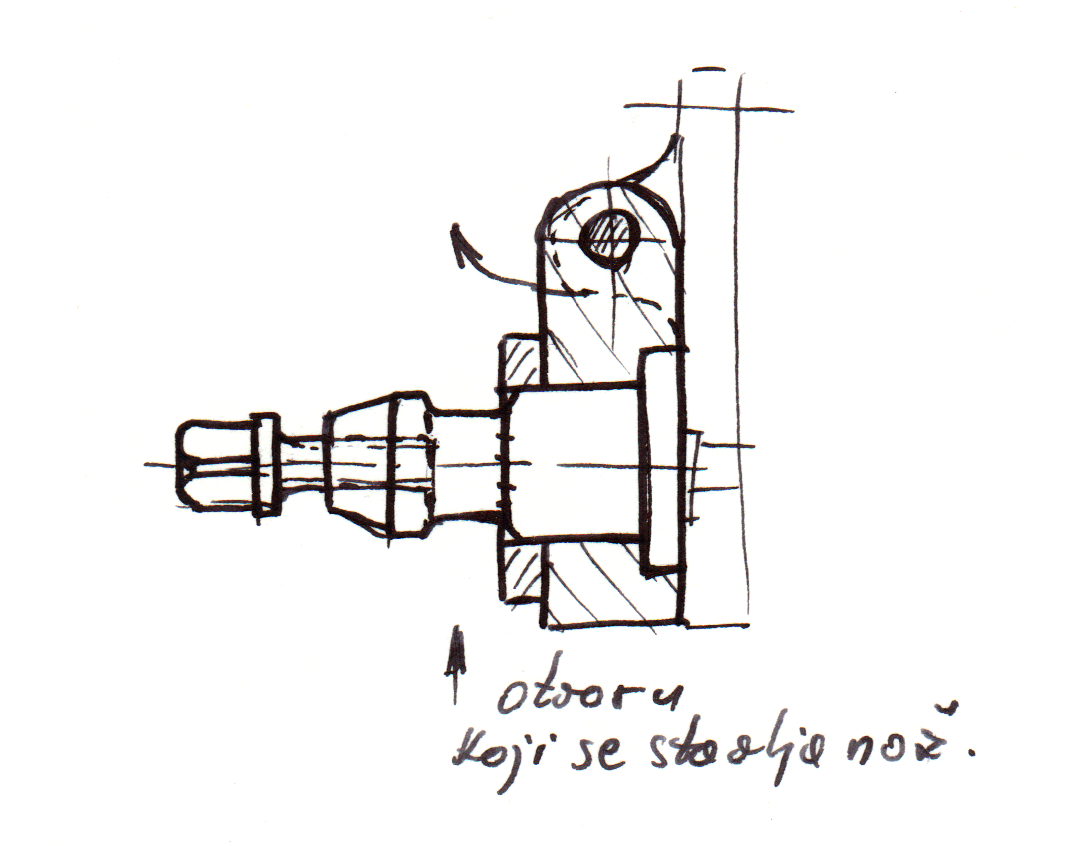 otvoru
koji se stavlja nož.